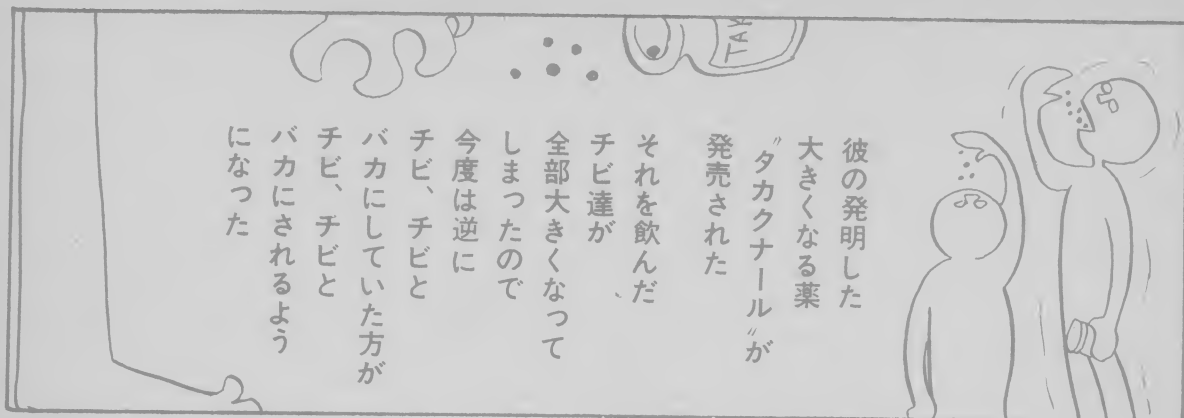 彼の発明した
大きくなる薬
〝タカクナール〟が
発売された
それを飲んだ
チビ達が
全部大きくなって
しまったので
今度は逆に
チビ、チビと
バカにしていた方が
チビ、チビと
バカにされるよう
になった
TAK